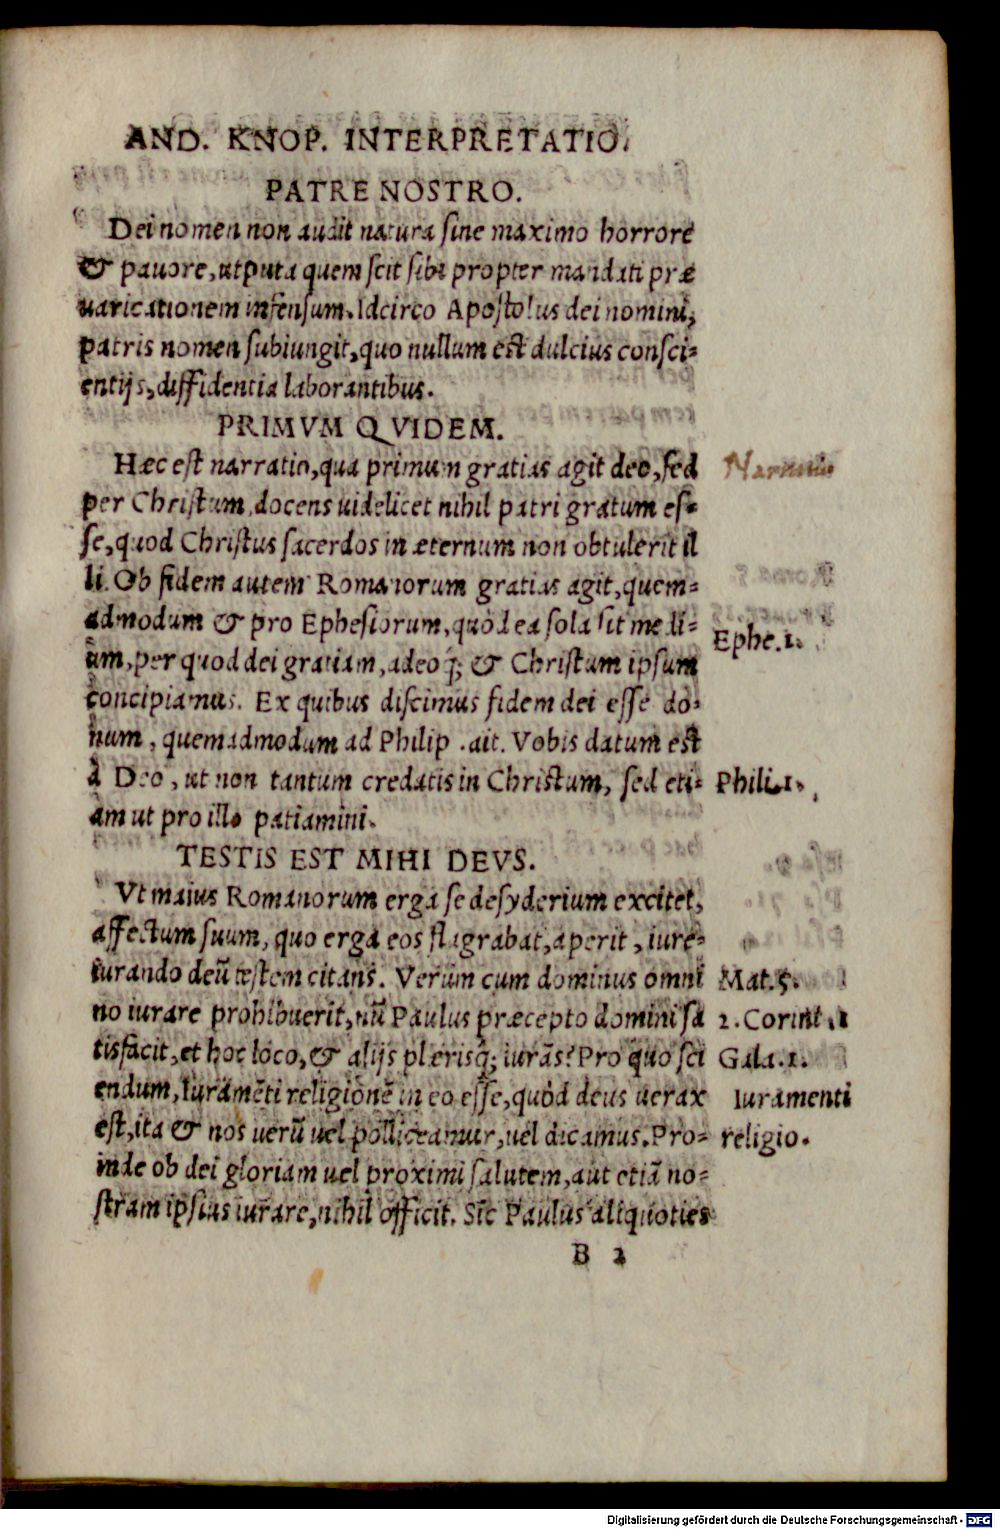 AND. KNOP. INTERPRETATIO.
PATRE NOSTRO.
Dei nomen non audit natura sine maximo horrore
& pauore, utputa quem scit sibi propter mandati præ
uaricationem infensum. Idcirco Apostolus dei nomini,
patris nomen subiungit, quo nullum est dulcius consci-
entijs, diffidentia laborantibus.
PRIMVM QVIDEM.
Hæc est narratio, qua primum gratias agit deo, sed
Narratio
per Christum, docens uidelicet nihil patri gratum es-
se, quod Christus sacerdos in æternum non obtulerit il
li. Ob fidem autem Romanorum gratias agit, quem-
admodum & pro Ephesiorum, quòd ea sola sit medi-
Ephe.1.
um, per quod dei gratiam, adeoq́; & Christum ipsum
concipiamus. Ex quibus discimus fidem dei esse do-
num, quemadmodum ad Philip. ait. Vobis datum est
à Deo, ut non tantum credatis in Christum, sed eti-
Phili.1.
am ut pro illo patiamini.
TESTIS EST MIHI DEVS.
Vt maius Romanorum erga se desyderium excitet,
affectum suum, quo erga eos flagrabat, aperit, iure-
iurando deũ testem citans. Verùm cum dominus omni
Mat.5.
no iurare prohibuerit, nũ Paulus præcepto domini sa
2. Corint.11
tisfacit, et hoc loco, & alijs plerisq́; iurãs? Pro quo sci
Gala.1.
endum, Iuramẽti religionẽ in eo esse, quòd deus uerax
Iuramenti
est, ita & nos uerũ uel polliceamur, uel dicamus. Pro-
religio.
inde ob dei gloriam uel proximi salutem, aut etiã no-
stram ipsius iurare, nihil officit. Sic Paulus aliquoties
B 2
Digitalisierung gefördert durch die Deutsche Forschungsgemeinschaft - DFG